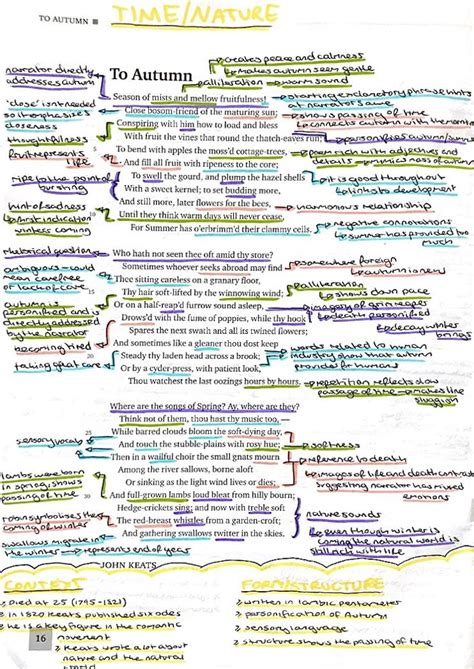 TO AUTUMN
TIME/NATURE
creates peace and calmness
makes autumn seem gentle
narrator directly
addresses autumn
To Autumn
palliteration
warm sound
Season of mists and mellow fruitfulness!
starting exclamatory phrase hints
at narrator's awe
'close' isn't needed
so it emphasizes
closeness
Close bosom-friend of the maturing sun;
shows passing of time
connects autumn with the
Conspiring with him how to load and bless
thoughtfulness
With fruit the vines that round the thatch-eaves run;
personifies autumn
To bend with apples the moss'd cottage-trees,
poem with adjectives and
details
mimics ness of autumn
fruit represents
life
And fill all fruit with ripeness to the core;
ripe to the point of
bursting
To swell the gourd, and plump the hazel shells
it is good throughout
its development
With a sweet kernel; to set budding more,
And still more, later flowers for the bees,
harmonious relationship
hint of sadness
first indication
winters coming
10
Until they think warm days will never cease,
negative connotations
For Summer has o'erbrimm'd their clammy cells.
summer has provided too
much
rhetorical question
Who hath not seen thee oft amid thy store?
somewhere foreign
Sometimes whoever seeks abroad may find
autumn is new
ambiguous - could
mean carefree
or lack of care
Thee sitting careless on a granary floor,
palliteration
15
Thy hair soft-lifted by the winnowing wind;
shows down pace
autumn is
personified and is
directly addressed
by the narrator
Or on a half-reap'd furrow sound asleep,
imagery of grim reaper
death personified
Drows'd with the fume of poppies, while thy hook
Spares the next swath and all its twined flowers;
decay winter
brings
becoming tired
And sometimes like a gleaner thou dost keep
words related to human
industry show that autumn
provides for humans
20
Steady thy laden head across a brook;
taking great care
Or by a cyder-press, with patient look,
Thou watchest the last oozings hours by hours.
repetition reflects slow
passage of time - makes line
sluggish
Where are the songs of Spring? Ay, where are they?
Think not of them, thou hast thy music too,—
25
While barred clouds bloom the soft-dying day,
sensory vocab
And touch the stubble-plains with rosy hue;
softness
Then in a wailful choir the small gnats mourn
reference to death
Among the river sallows, borne aloft
images of life and death contrast
suggesting narrator has mixed
emotions
lambs were born
in spring, shows
passing of time
Or sinking as the light wind lives or dies;
30
And full-grown lambs loud bleat from hilly bourn;
Hedge-crickets sing; and now with treble soft
nature sounds
robin symbolises the
coming of winter
The red-breast whistles from a garden-croft;
even though winter is
coming the natural world is
still rich with life
And gathering swallows twitter in the skies.
swallows migrate in
the winter
represents end of year
JOHN KEATS
CONTEXT
Died at 25 (1795-1821)
in 1820 Keats published six odes
he is a key figure in the romantic
movement
Keats wrote a lot about
nature and the natural
world
FORM/STRUCTURE
written in iambic pentameter
personification of Autumn
sensory language
structure shows the passing of time
16